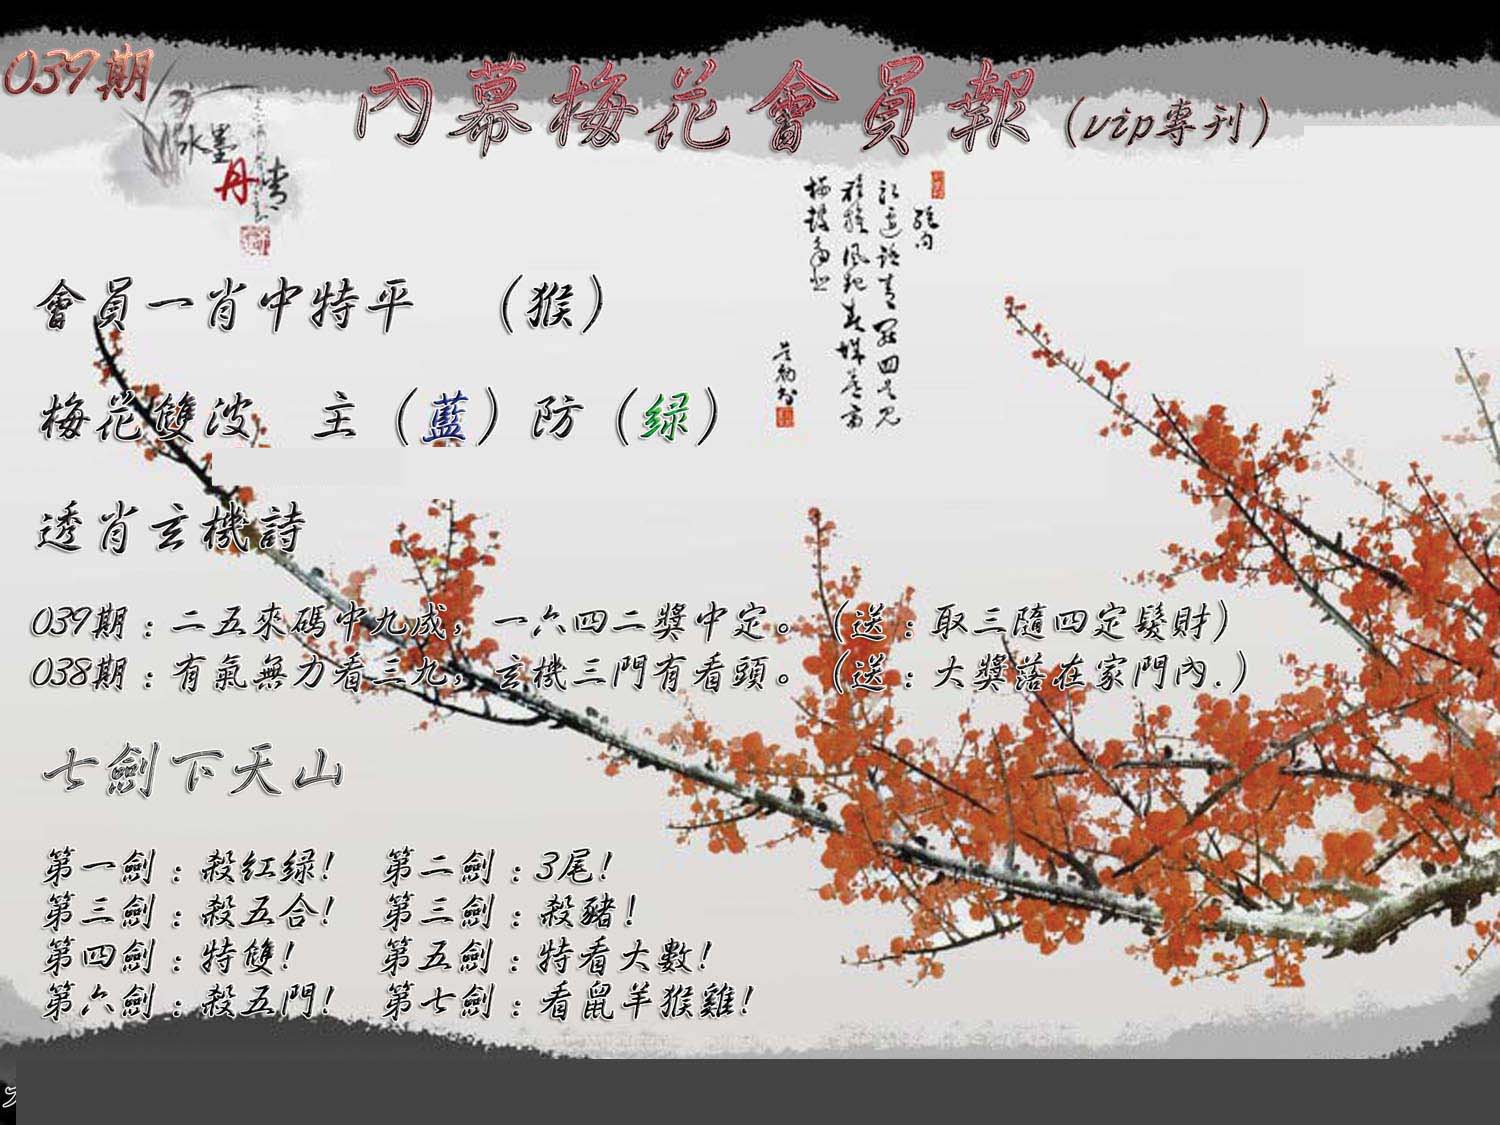 039期
內幕梅花會員報(vip專刊)
水墨
丹青
會員一肖中特平 (猴)
梅花雙波 主(藍)防(绿)
透肖玄機詩
039期:二五來碼中九成,一六四二獎中定。(送:取三隨四定髮財)
038期:有氣無力看三九,玄機三門有看頭。(送:大獎落在家門內.)
七劍下天山
第一劍:殺紅绿! 第二劍:3尾!
第三劍:殺五合! 第三劍:殺豬!
第四劍:特雙! 第五劍:特看大數!
第六劍:殺五門! 第七劍:看鼠羊猴雞!